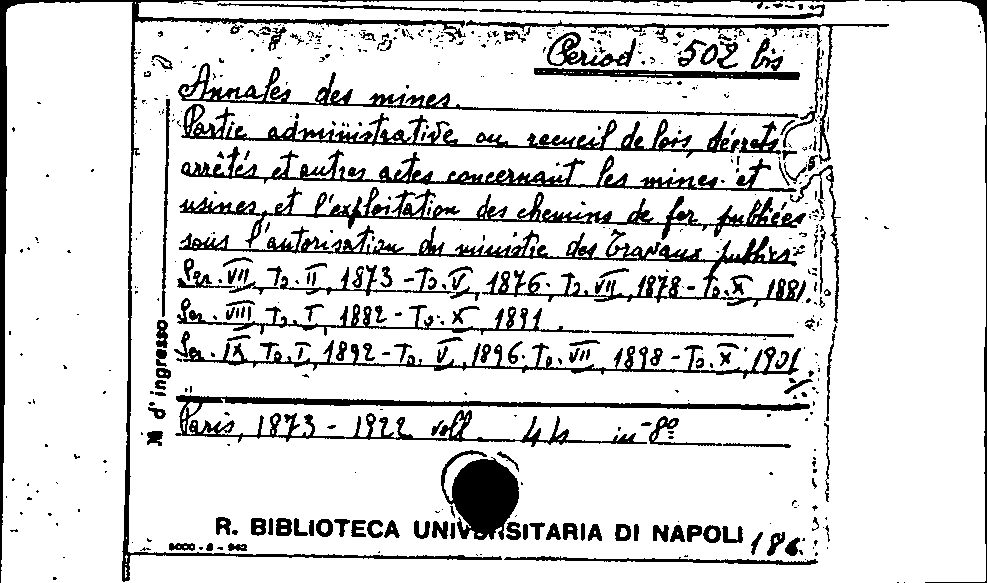 Period. 502 bis
Annales des mines.
Partie administrative ou recueil de lois, décrets
arrêtés, et autres actes concernant les mines et
usines, et l'exploitation des chemins de fer, publiées
sous l'autorisation du ministre des Travaux publics
Ser. VII, To. II, 1873 - To. V, 1876. To. VII, 1878 - To. X, 1881
Ser. VIII, To. I, 1882 - To. X, 1891.
Ser. IX, To. I, 1892 - To. V, 1896. To. VII, 1898 - To. X, 1901
Paris, 1873 - 1922 voll. in-8º
N d'ingresso
R. BIBLIOTECA UNIVERSITARIA DI NAPOLI
186